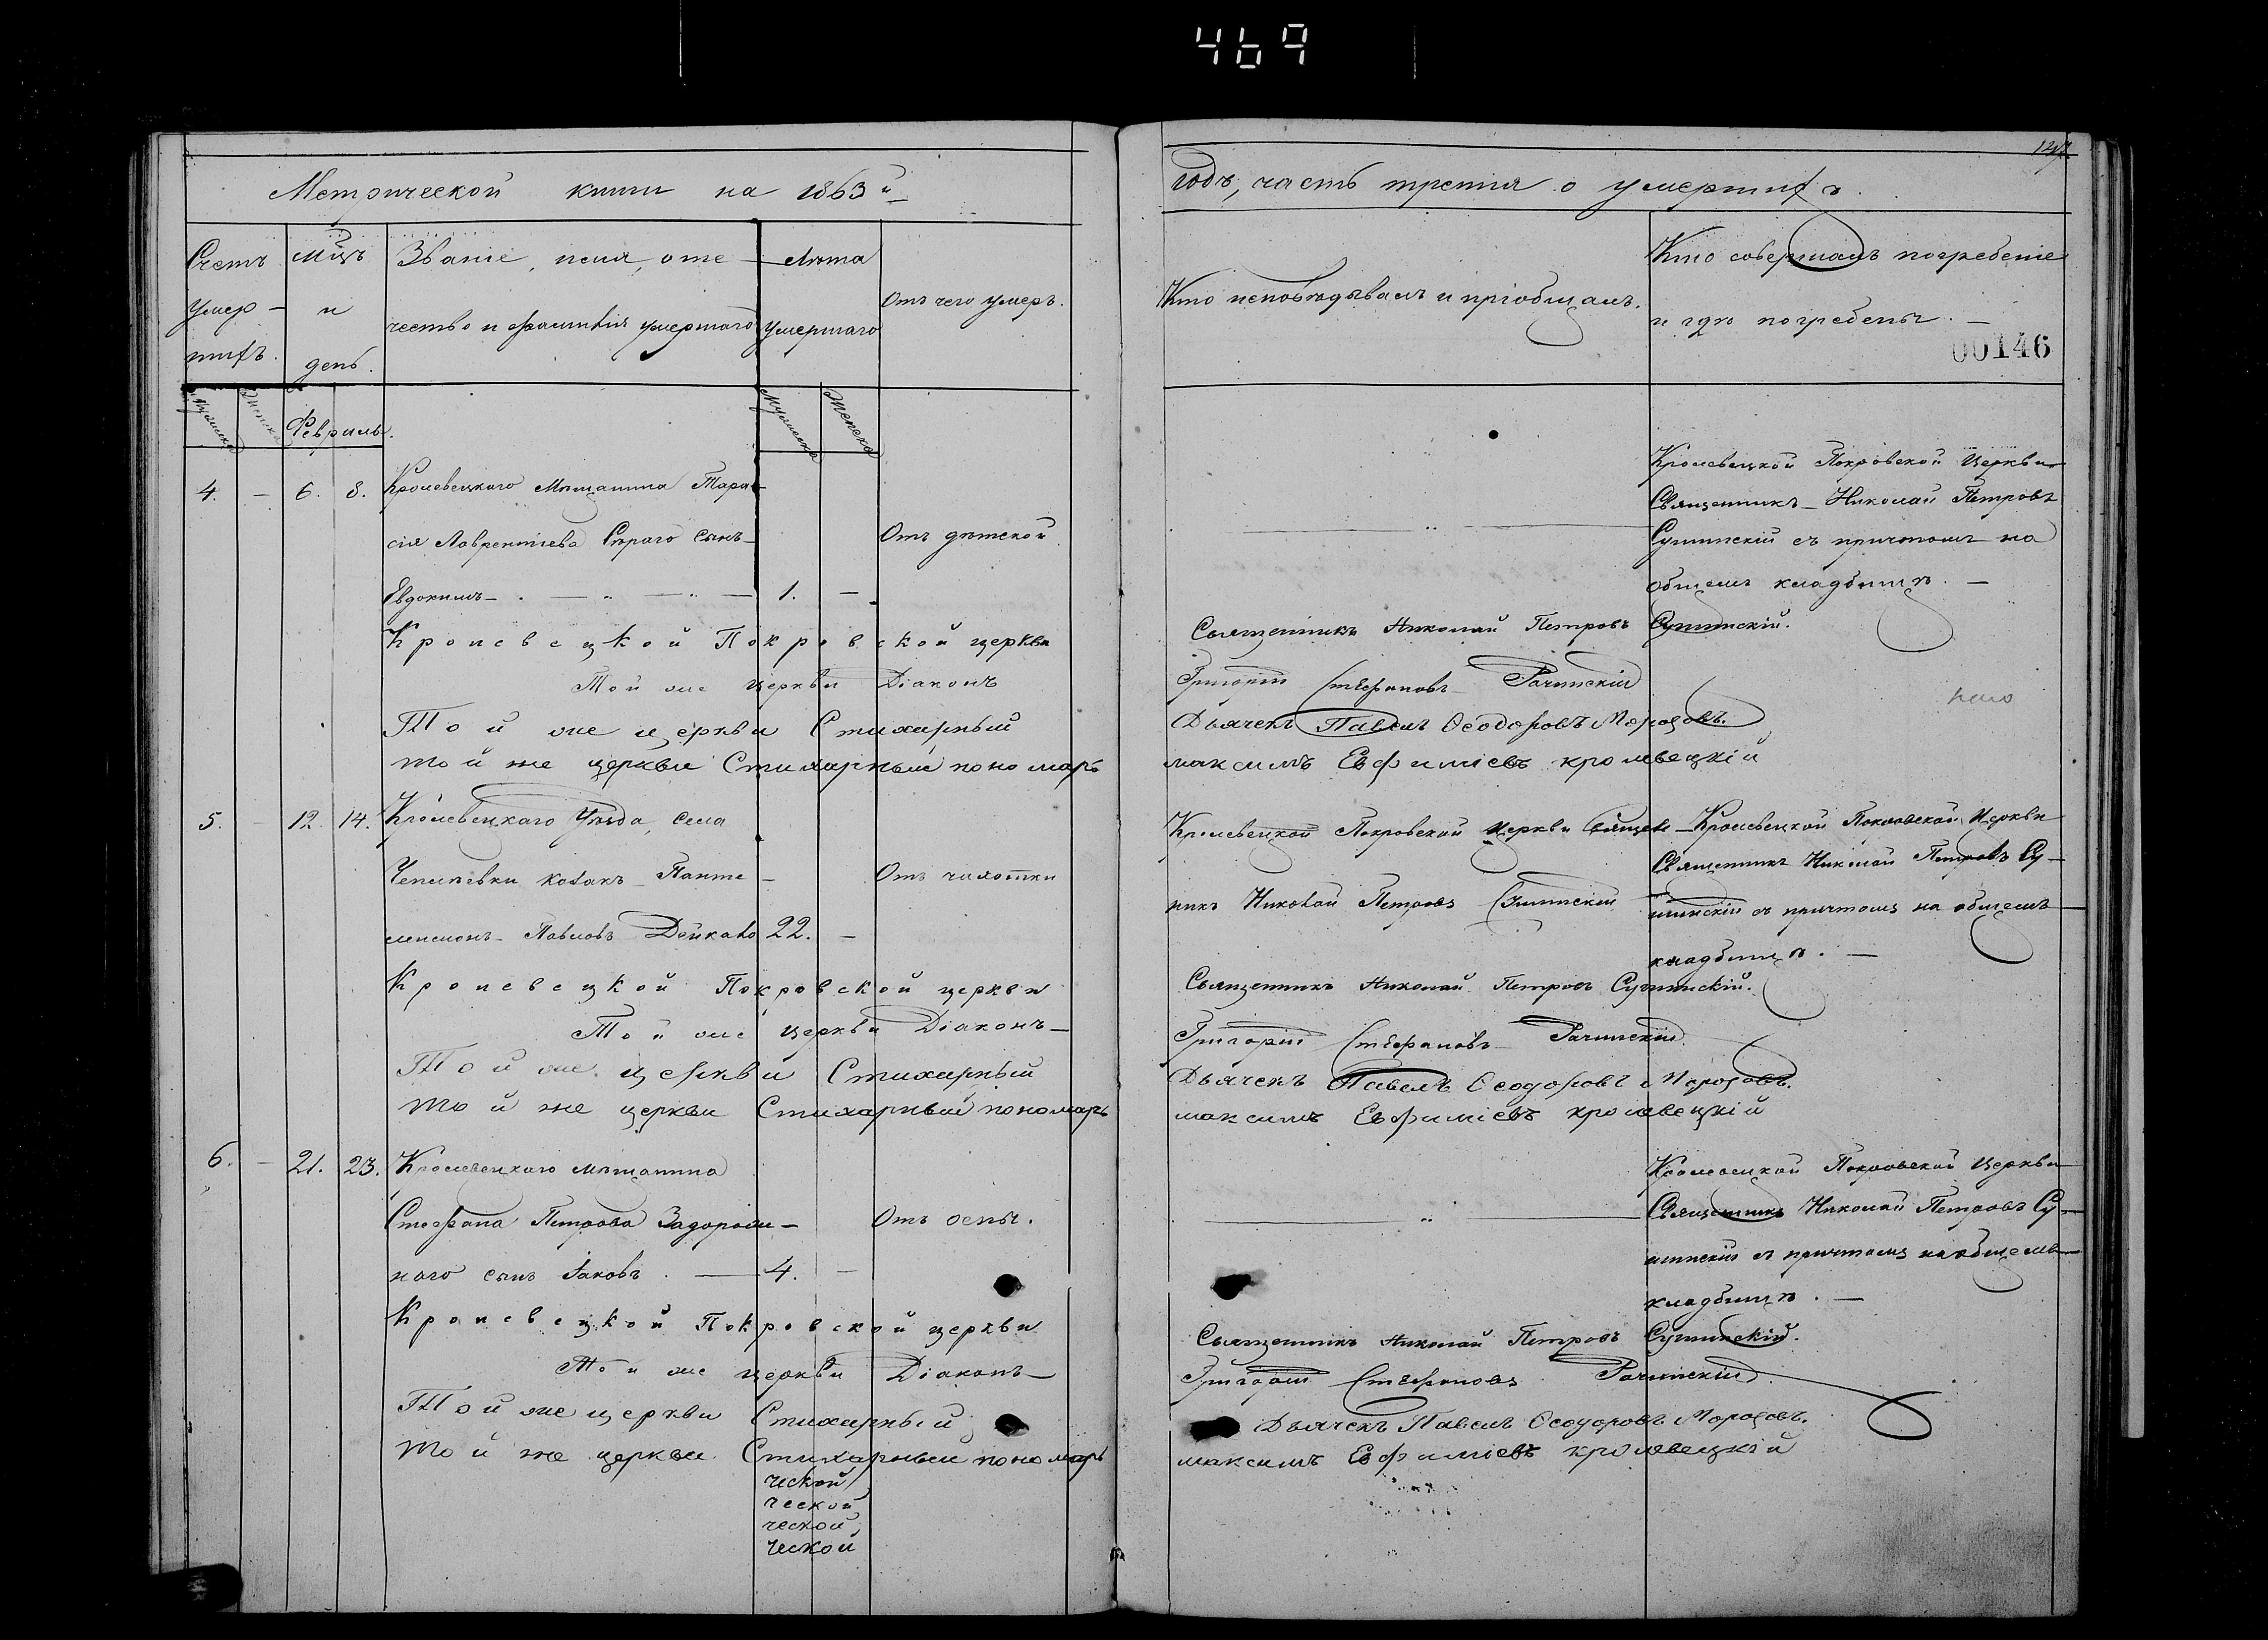 469
147
Метрической книги на 1863й
годъ, часть третія о умершихъ.
Счетъ умер-шихъ.
Мцъ и день.
Званіе, имя, оте-
чество и фамилія умершаго
Лѣта
умершаго
Отъ чего умеръ.
Кто исповѣдывалъ и пріобщалъ.
Кто совершалъ погребеніе
и гдѣ погребены. —
00146
Мужеска
Женска
Февраль.
Мужеска
Женска
4. — 6. 8. Кролевецкого Мѣщанина Тара-
сія Лаврентіева Сѣраго сынъ
Евдокимъ 1. —
Отъ дѣтской
Кролевецкой Покровской Церкви
Священникъ Николай Петровъ
Сушинскій съ причтомъ на
общемъ кладбищѣ. —
Кролевецкой Покровской церкви Священникъ Николай Петровъ Сушинскій.
Той же церкви Діаконъ Григорій Стефановъ Рачинскій
Той же церкви Стихарный Дьячекъ Павелъ Ѳеодоровъ Морозовъ.
той же церкви Стихарный пономарь максимъ Евфиміевъ кролевецкій
5. — 12. 14. Кролевецкаго Уѣзда, села
Чепліевки козакъ Панте-
леимонъ Павловъ Дейкало 22. —
Отъ чахотки
Кролевецкой Покровской Церкви Священ-
никъ Николай Петровъ Сушинскій
Кролевецкой Покровской Церкви
Священникъ Николай Петровъ Су-
шинскій съ причтомъ на общемъ
кладбищѣ. —
Кролевецкой Покровской церкви Священникъ Николай Петровъ Сушинскій.
Той же церкви Діаконъ Григорій Стефановъ Рачинскій
Той же церкви Стихарный Дьячекъ Павелъ Ѳеодоровъ Морозовъ.
той же церкви Стихарный пономарь максимъ Евфиміевъ кролевецкій
6. — 21. 23. Кролевецкаго мѣщанина
Стефана Петрова Задорож-
наго сынъ Іаковъ. — 4. —
Отъ оспы.
Кролевецкой Покровской Церкви
Священникъ Николай Петровъ Су-
шинскій съ причтомъ на общемъ
кладбищѣ. —
Кролевецкой Покровской церкви Священникъ Николай Петровъ Сушинскій.
Той же церкви Діаконъ Григорій Стефановъ Рачинскій
Той же церкви Стихарный Дьячекъ Павелъ Ѳеодоровъ Морозовъ.
той же церкви Стихарный пономарь максимъ Евфиміевъ кролевецкій
ческой
ческой
ческой
ческой